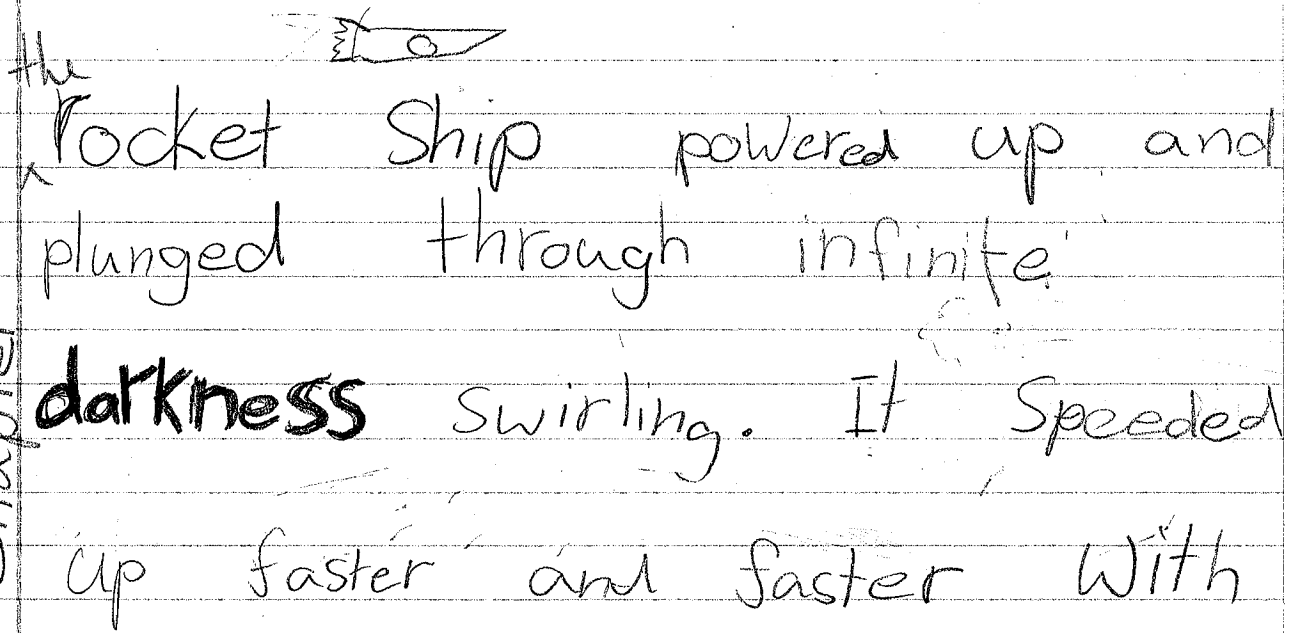 the
rocket Ship powered up and
plunged through infinite
darkness swirling. It Speeded
up faster and faster With